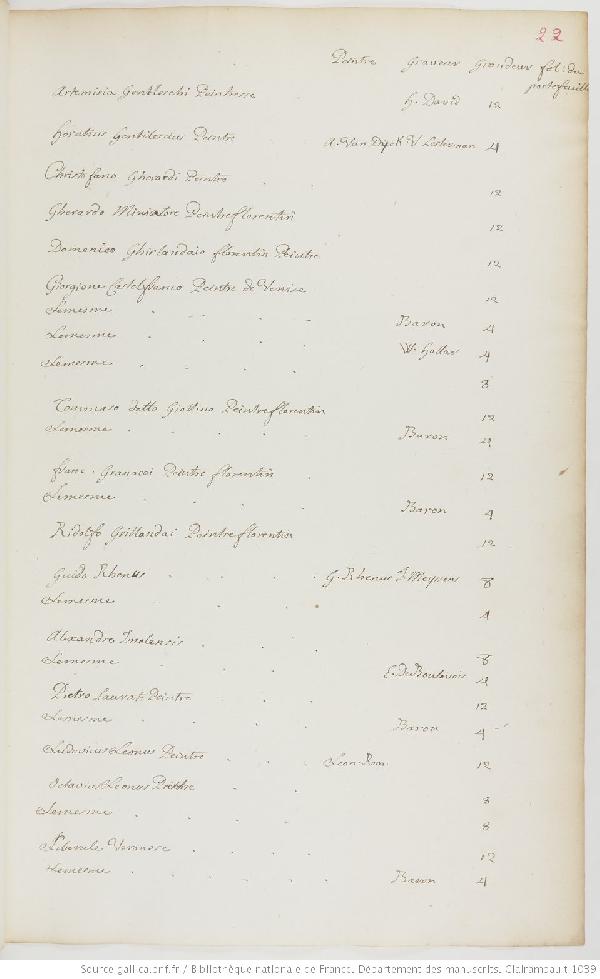 22
Peintre Graveur Grandeur fol: du portefeuille
Artemisia Gentileschi Peintresse H. David 12
Horatius Gentilescius Peintre A. Van Dyck V. 4
Christofano Gherardi Peintre 12
Gherardo Miniatore Peintre florentin 12
Domenico Ghirlandaio florentin Peintre 12
Giorgione Castelfranco Peintre de Venise 12
Lemesme Baron 4
Lemesme W. Hollar 4
Lemesme 8
Tommaso detto Giottino Peintre florentin 12
Lemesme Baron 4
Granacci Peintre florentin 12
Lemesme Baron 4
Ridolfo Grillandai Peintre florentin 12
Guido Rhenus G. Rhenus J. Meyssens 8
Lemesme 4
Alexandre Imolensis 8
Lemesme E. De Boulonois 4
Pietro Laurati Peintre 12
Lemesme Baron 4
Ludovicus Leonus Peintre Leon Rom. 12
Octavius Leonus Peintre 8
Lemesme 8
Liberale Veronese 12
Lemesme Baron 4
Source gallica.bnf.fr / Bibliothèque nationale de France. Département des manuscrits. Clairambault 1039